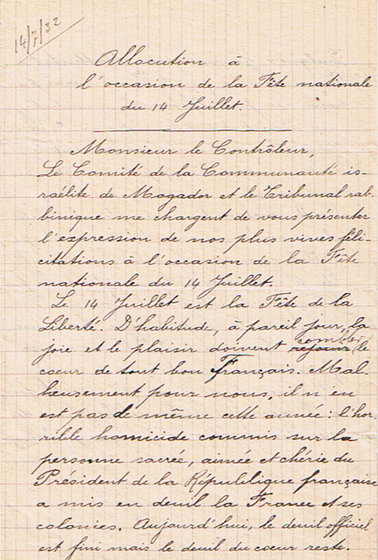 14/7/32
Allocution à
l'occasion de la Fête nationale
du 14 Juillet.
Monsieur le Contrôleur,
Le Comité de la Communauté is-
raélite de Mogador et le Tribunal rab-
binique me chargent de vous présenter
l'expression de nos plus vives féli-
citations à l'occasion de la Fête
nationale du 14 Juillet.
Le 14 Juillet est la Fête de la
Liberté. D'habitude, à pareil jour, la
combler
joie et le plaisir doivent le
coeur de tout bon Français. Mal-
heusement pour nous, il n'en
est pas de même cette année : l'hor-
rible homicide commis sur la
personne sacrée, aimée et chérie du
Président de la République française
a mis en deuil la France et ses
colonies. Aujourd'hui, le deuil officiel
est fini mais le deuil du coeur reste.